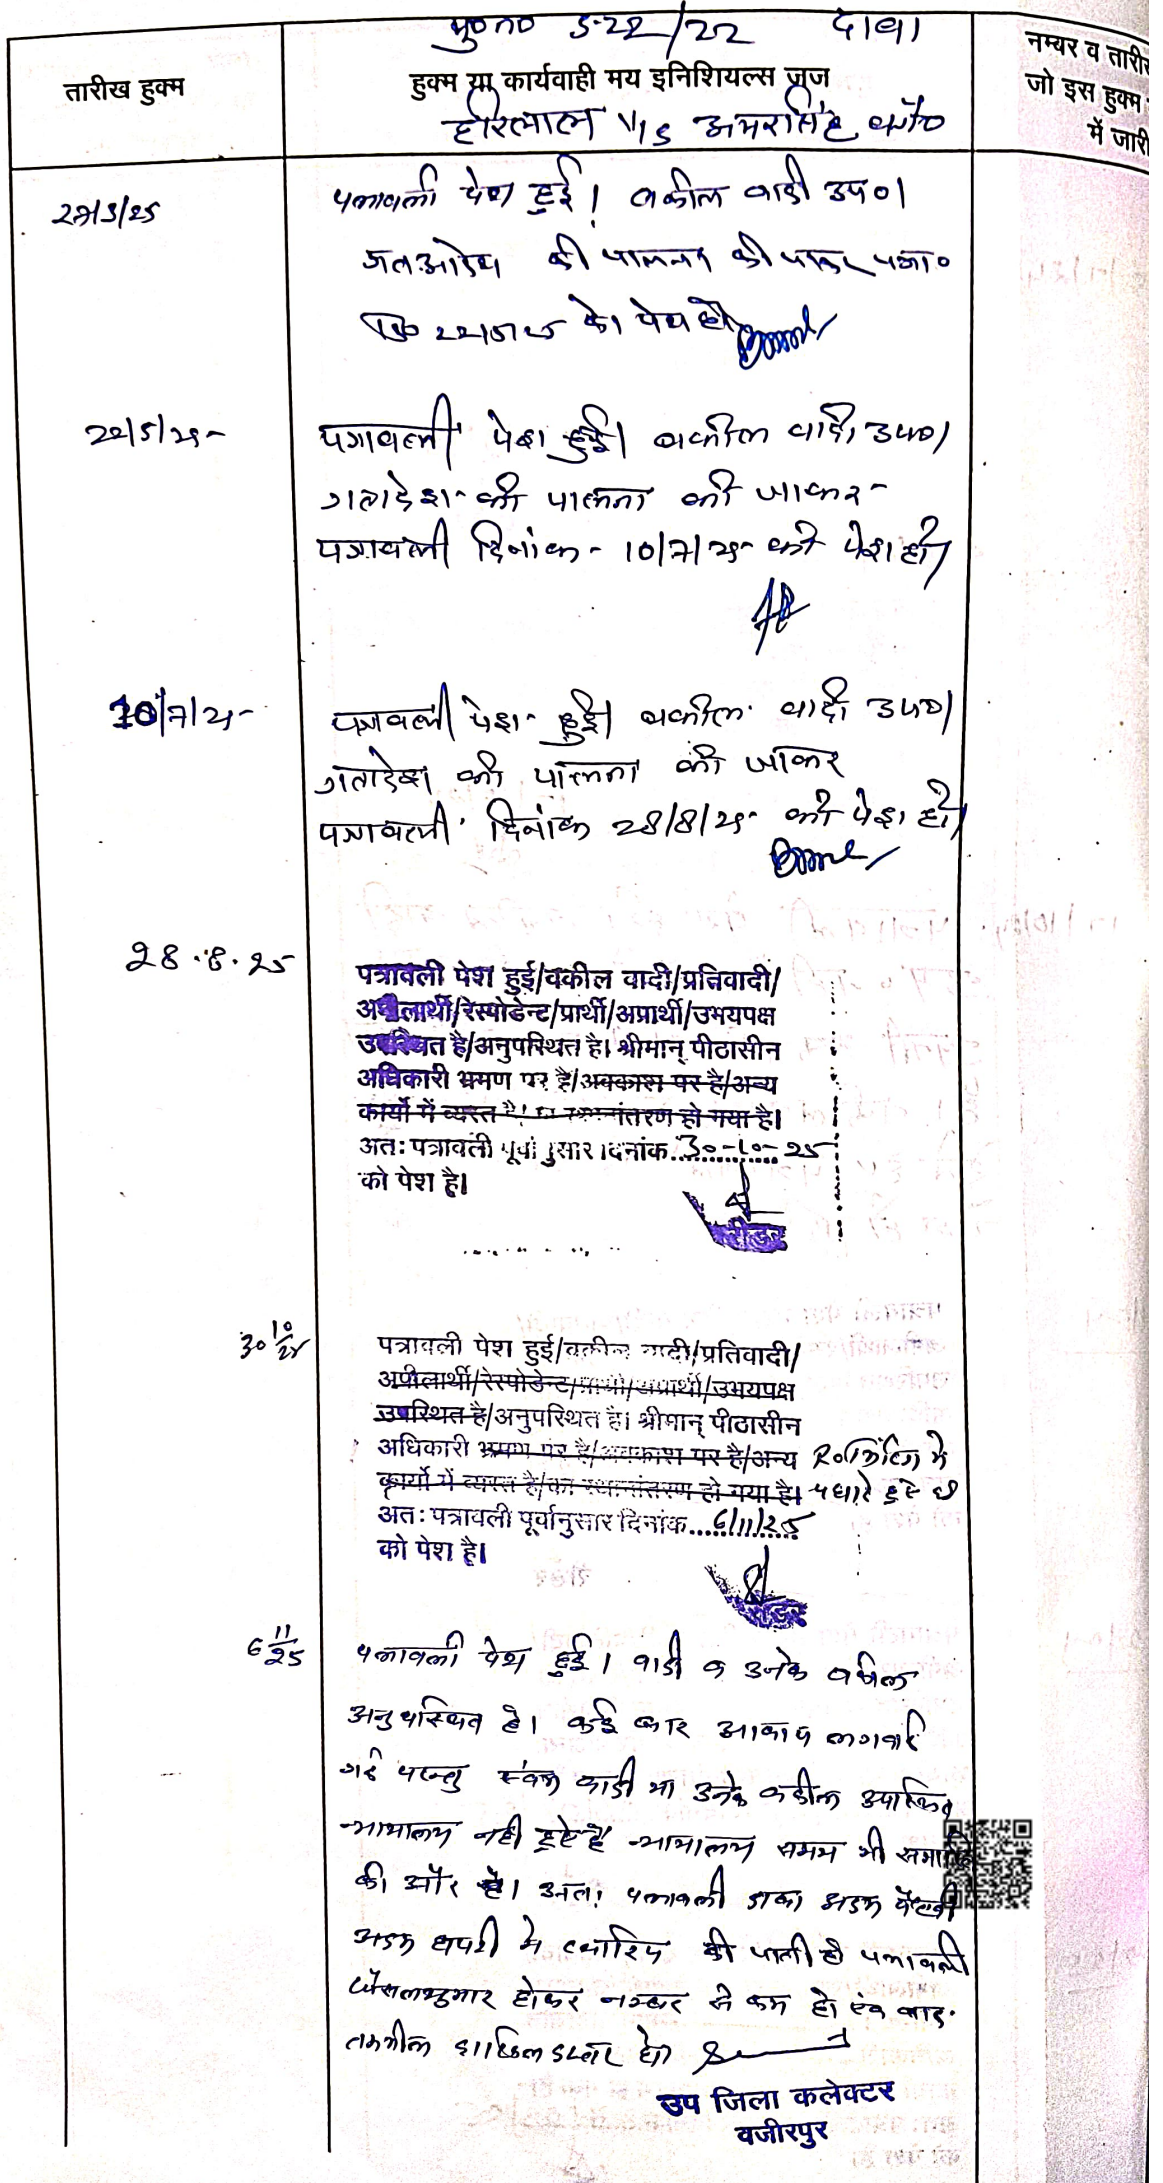 मु०न० 5-22/22 दावा
तारीख हुक्म
हुक्म या कार्यवाही मय इनिशियल्स जज
नम्बर व तारीख
जो इस हुक्म
में जारी
हरिलाल V/S अमरसिंह वगै०
27/3/25
पत्रावली पेश हुई। वकील वादी उप०।
गतआदेश की पालना की जाकर पत्रा०
22/5/25 को पेश हो
22/5/25
पत्रावली पेश हुई। वकील वादी उप०।
गतादेश की पालना की जाकर
पत्रावली दिनांक 10/7/25 को पेश हो।
10/7/25
पत्रावली पेश हुई। वकील वादी उप०।
गतादेश की पालना की जाकर
पत्रावली दिनांक 28/8/25 को पेश हो।
28.8.25
पत्रावली पेश हुई/वकील वादी/प्रतिवादी/
अपीलार्थी/रेस्पोडेन्ट/प्रार्थी/अप्रार्थी/उभयपक्ष
उपस्थित है/अनुपस्थित है। श्रीमान् पीठासीन
अधिकारी भ्रमण पर है/अवकाश पर है/अन्य
कार्यो में व्यस्त है/का स्थानांतरण हो गया है।
अतः पत्रावली पूर्वानुसार दिनांक 30-10-25
को पेश है।
रीडर
30 10/25
पत्रावली पेश हुई/वकील वादी/प्रतिवादी/
अपीलार्थी/रेस्पोडेन्ट/प्रार्थी/अप्रार्थी/उभयपक्ष
उपस्थित है/अनुपस्थित है। श्रीमान् पीठासीन
अधिकारी भ्रमण पर है/अवकाश पर है/अन्य मे
कार्यो में व्यस्त है/का स्थानांतरण हो गया है। पधारे हुए है
अतः पत्रावली पूर्वानुसार दिनांक 6/11/25
को पेश है।
रीडर
6 11/25
पत्रावली पेश हुई। वादी व उनके वकील
अनुपस्थित है। कई बार आवाज लगवाई
गई परन्तु स्वंय वादी या उनके वकील उपस्थित
न्यायालय नही हुऐ है न्यायालय समय भी समाप्ति
की और है। अतः पत्रावली दावा अदम पैरवी
अदम हाजरी मे खारिज की जाती है पत्रावली
फैसलशुमार होकर नम्बर से कम हो एंव बाद
तकमील दाखिल दफ्तर हो।
उप जिला कलेक्टर
वजीरपुर